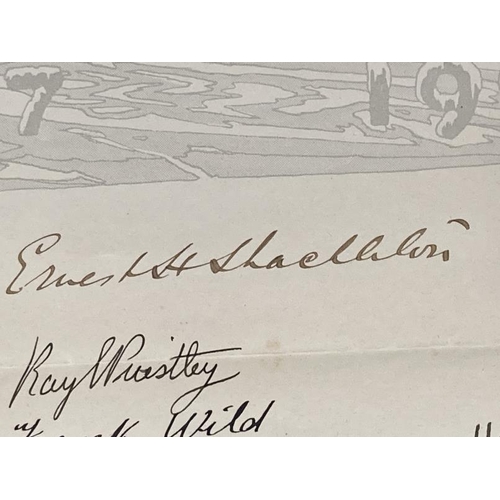 7 19
Ernest H Shackleton
Ray E Priestley
Frank Wild